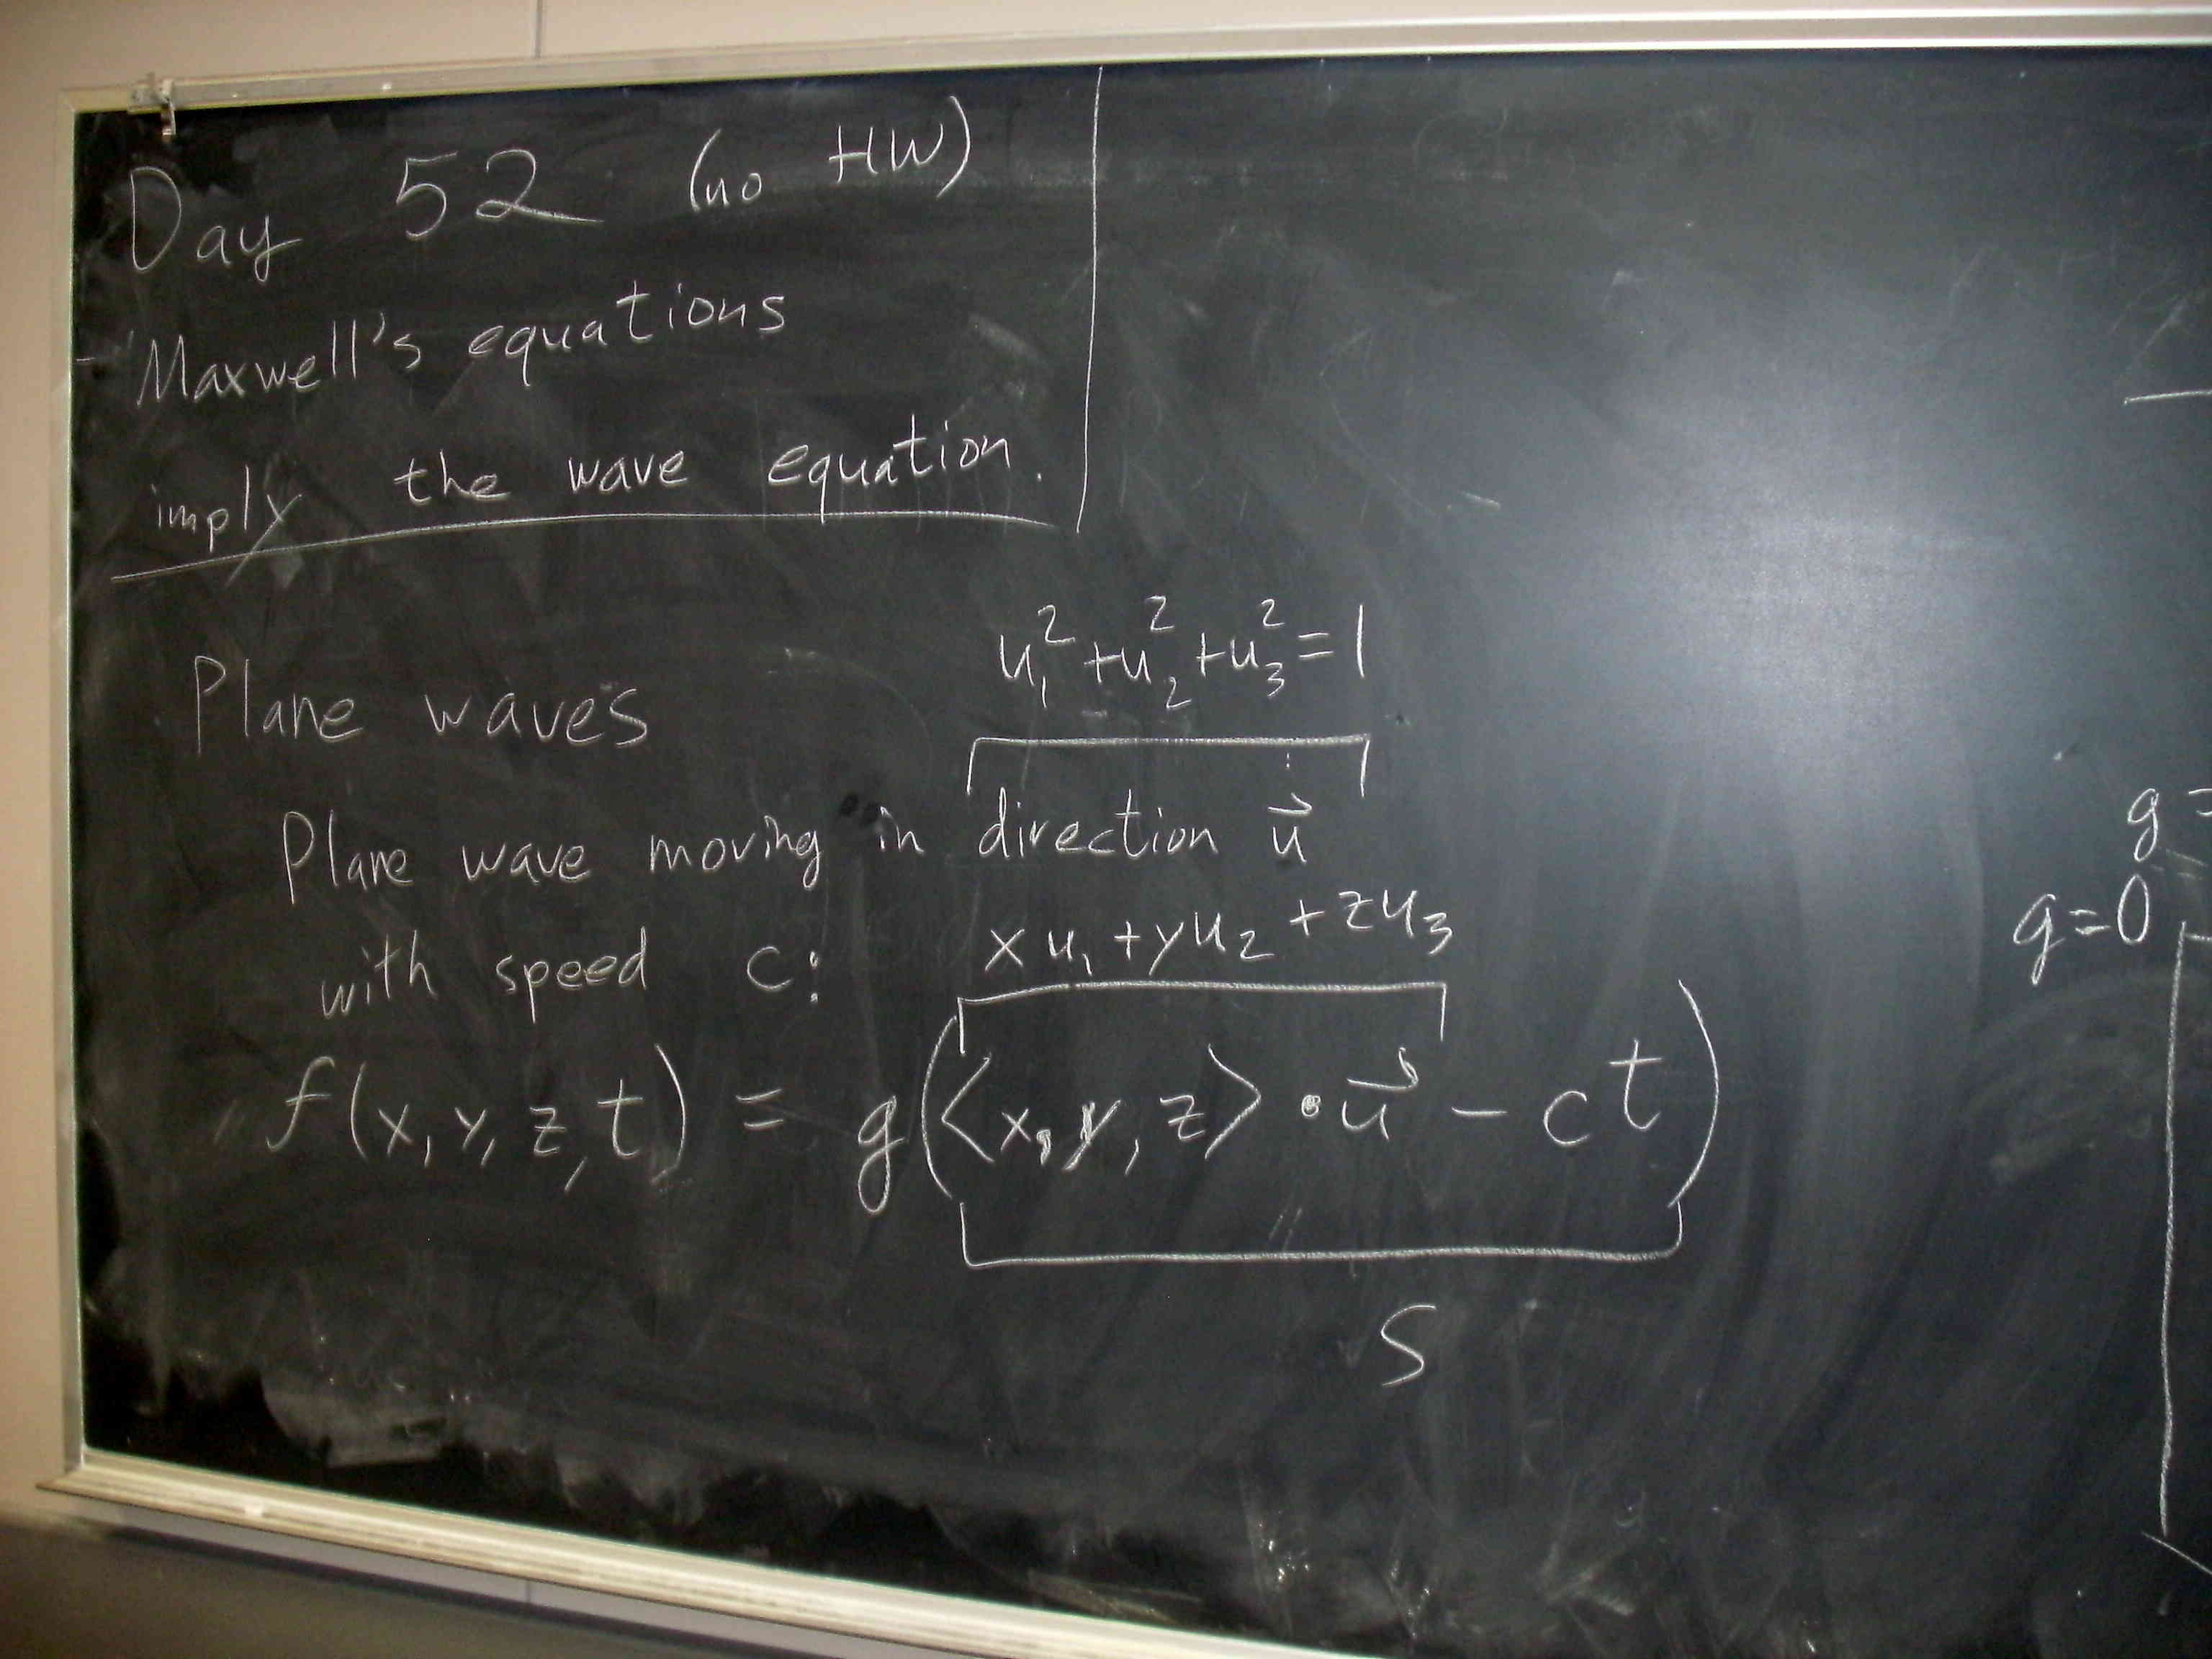 Day 52 (no HW)
Maxwell's equations
imply the wave equation.
Plane waves
u₁² + u₂² + u₃² = 1
Plane wave moving in direction u⃗
with speed c:
xu₁ + yu₂ + zu₃
f(x, y, z, t) = g(⟨x, y, z⟩ • u⃗ − ct)
S
g =
g=0